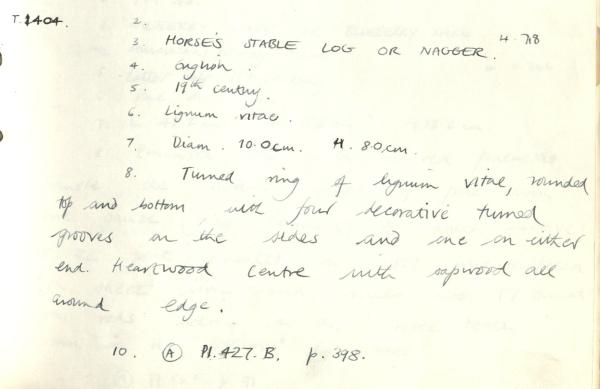 T.1404.
2.
3. HORSE'S STABLE LOG OR NAGGER. 4.78
4. English.
5. 19th century.
6. Lignum vitae.
7. Diam. 10.0cm. H. 8.0cm.
8. Turned ring of lignum vitae, rounded
top and bottom with four decorative turned
grooves on the sides and one on either
end. Heartwood centre with sapwood all
around edge.
10. (A) Pl. 427. B. p. 398.